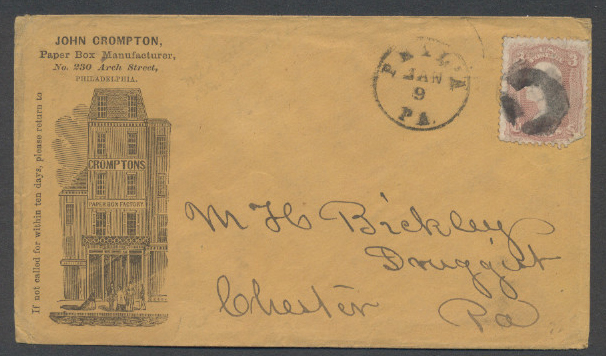 JOHN CROMPTON,
Paper Box Manufacturer,
No. 230 Arch Street,
PHILADELPHIA.
If not called for within ten days, please return to
CROMPTONS
PAPER BOX FACTORY
PHIL'A
JAN
9
PA.
3
M H Bickley
Druggist
Chester
Pa